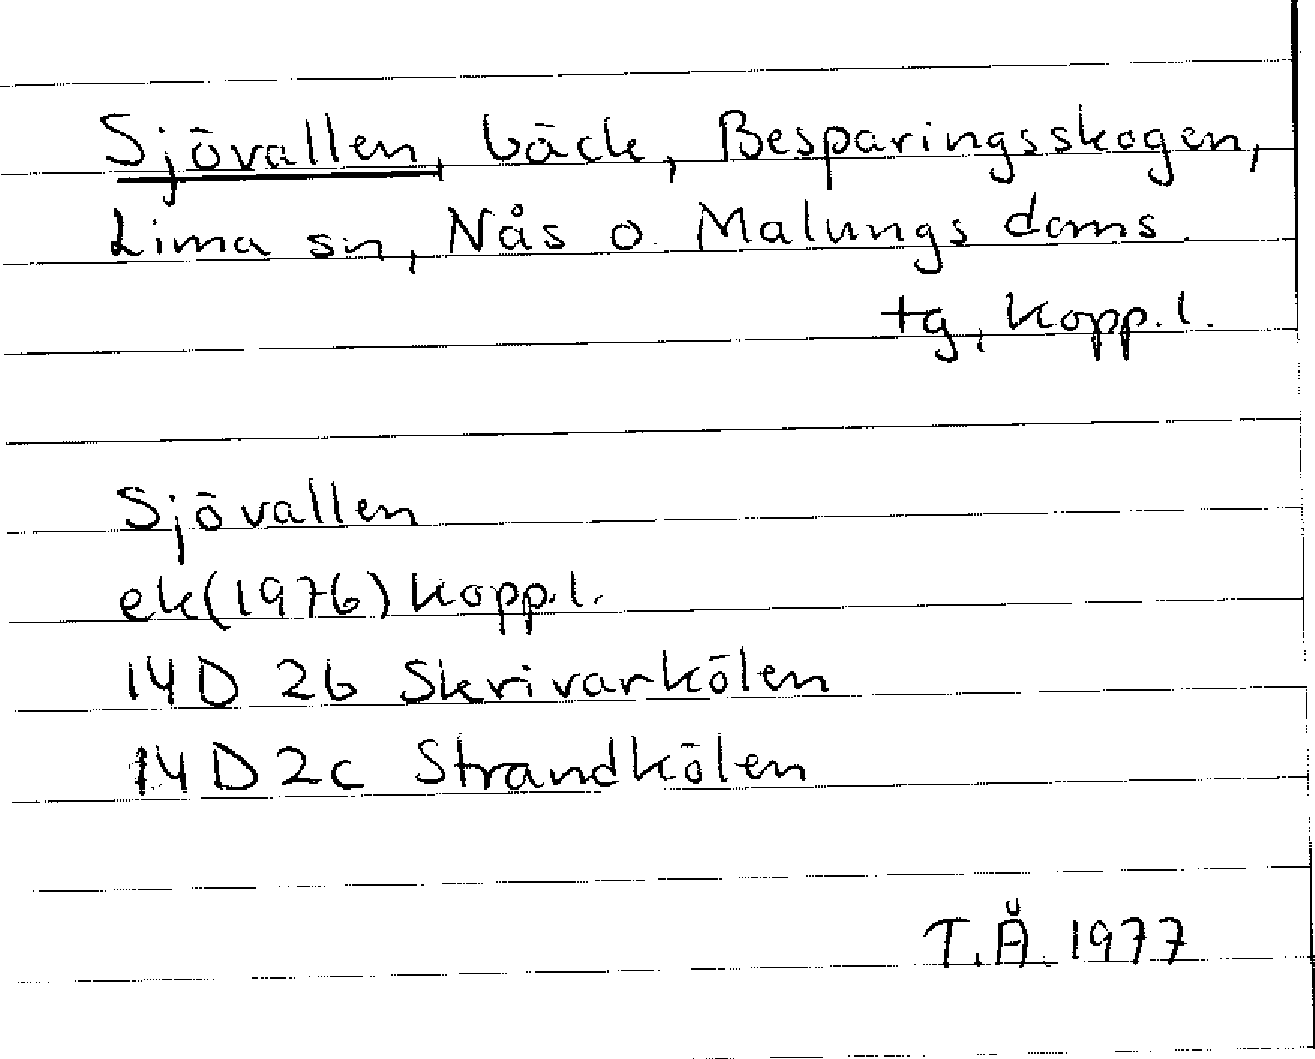 Sjövallen, bäck, Besparingsskogen,
Lima sn, Nås o Malungs doms
tg, Kopp.l.
Sjövallen
ek(1976) Kopp.l.
14D 2b Skrivarkölen
14D 2c Strandkölen
T.Å. 1977